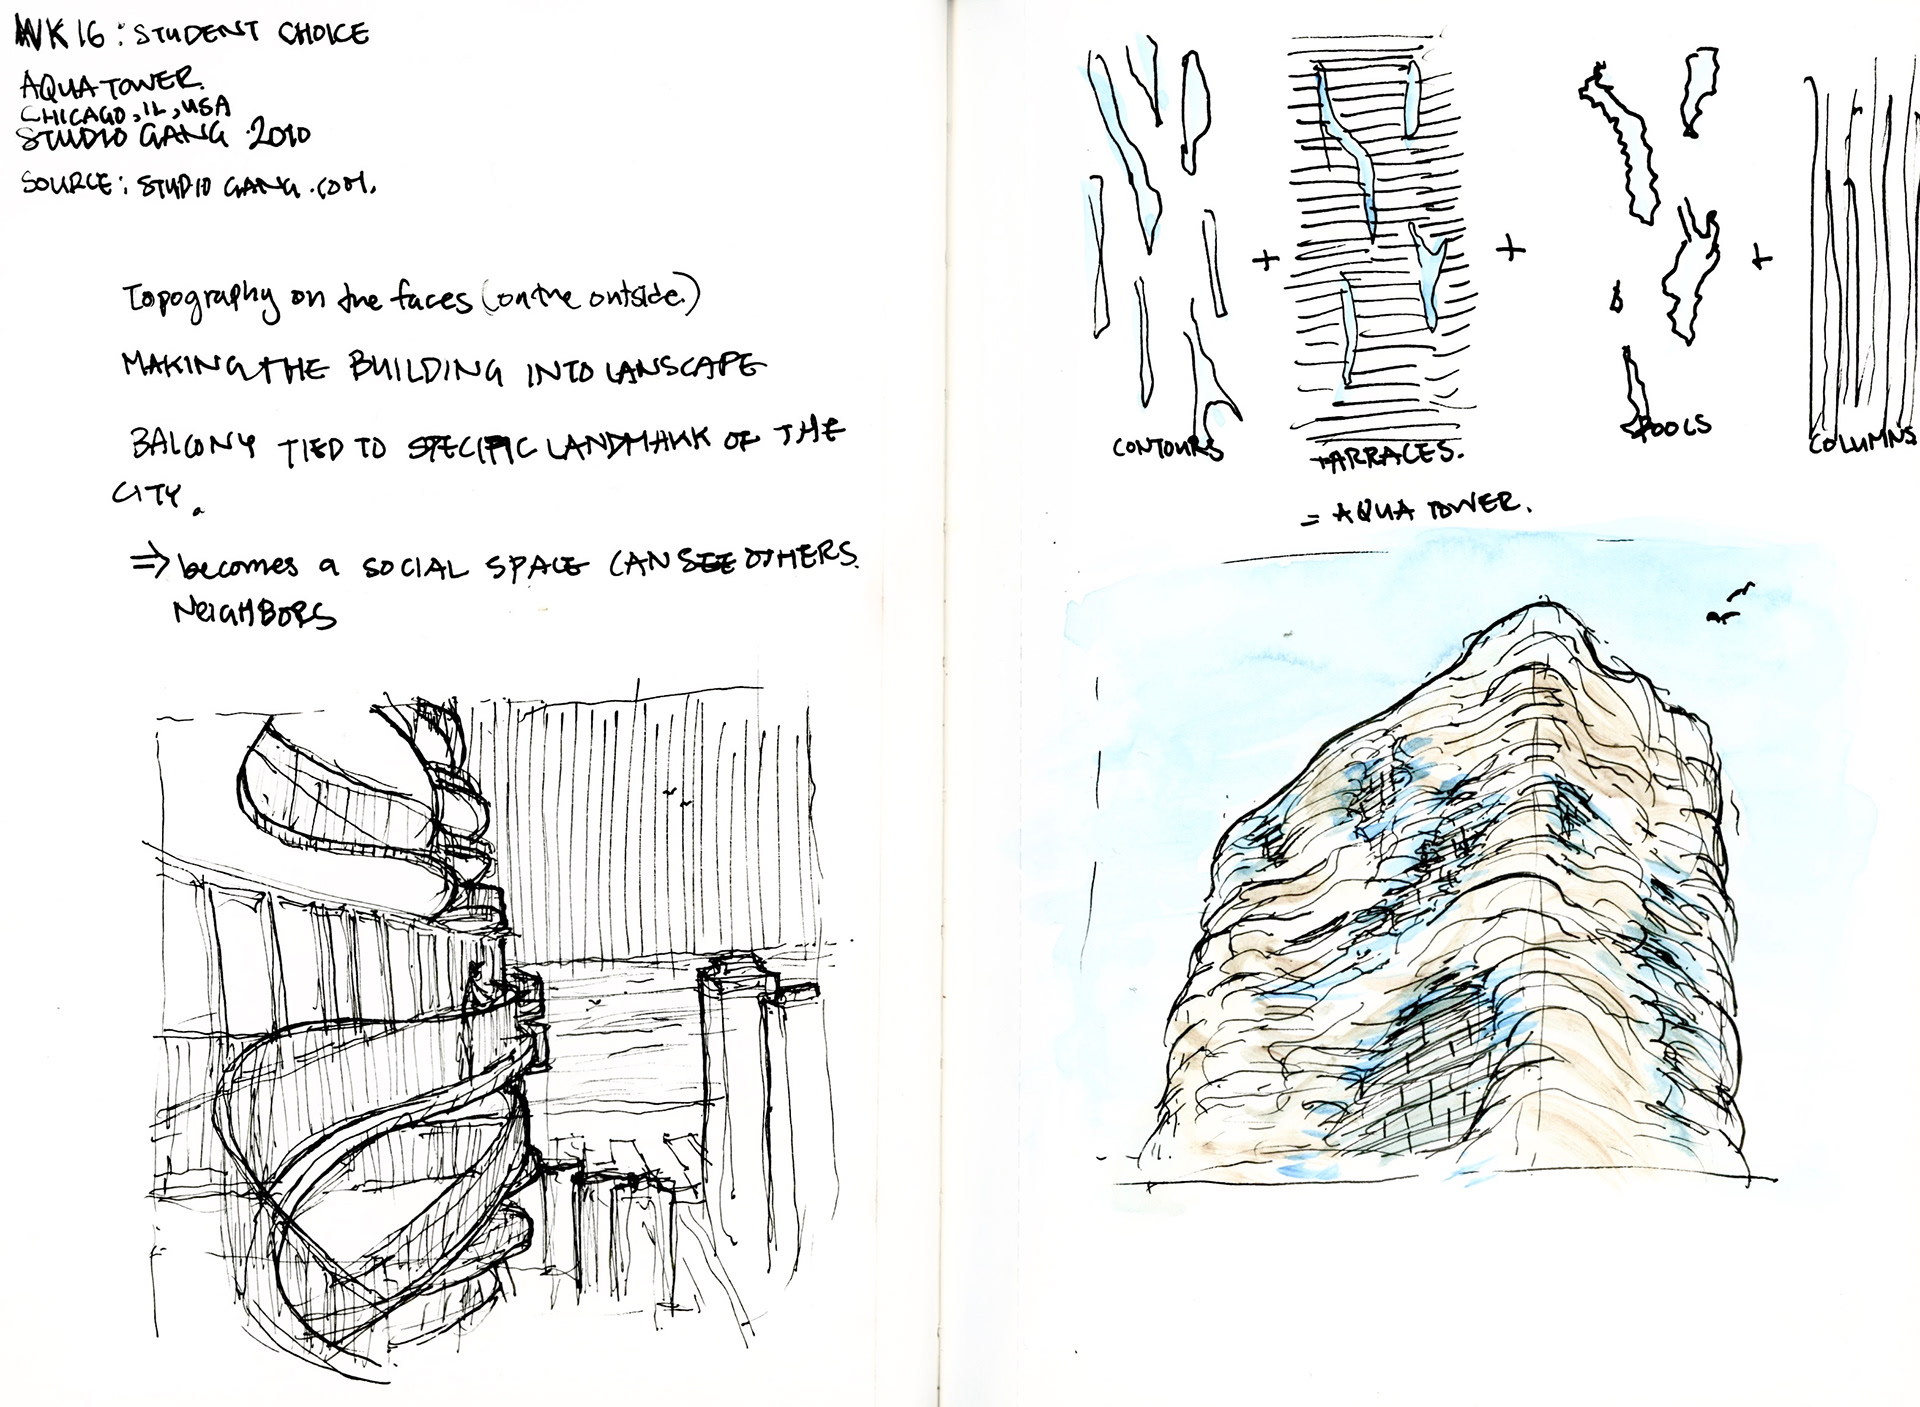 WK 16 : STUDENT CHOICE
AQUA TOWER.
CHICAGO, IL, USA
STUDIO GANG 2010
SOURCE: STUDIO GANG .COM.
Topography on the faces (on the outside.)
MAKING THE BUILDING INTO LANSCAPE
BALCONY TIED TO SPECIFIC LANDMARK OF THE
CITY.
⇒ becomes a SOCIAL SPACE CAN SEE OTHERS.
NEIGHBORS
+ + +
CONTOURS TARRACES. POOLS COLUMNS
= AQUA TOWER.